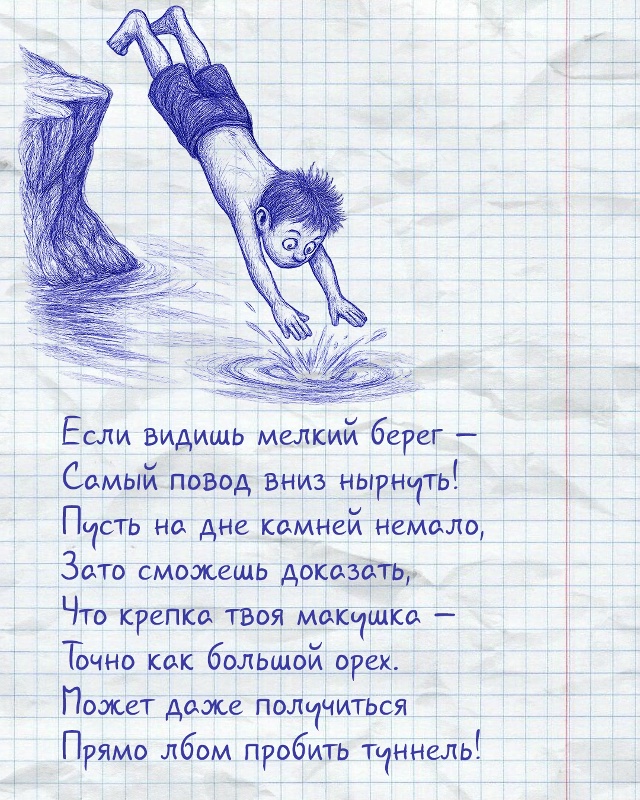 Если видишь мелкий берег —
Самый повод вниз нырнуть!
Пусть на дне камней немало,
Зато сможешь доказать,
Что крепка твоя макушка —
Точно как большой орех.
Может даже получиться
Прямо лбом пробить туннель!